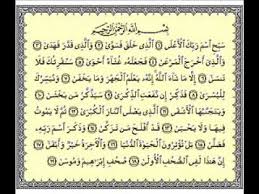 بِسْمِ اللَّهِ الرَّحْمَٰنِ الرَّحِيمِ
سَبِّحِ اسْمَ رَبِّكَ الْأَعْلَى ١ الَّذِي خَلَقَ فَسَوَّىٰ ٢ وَالَّذِي قَدَّرَ فَهَدَىٰ ٣
وَالَّذِي أَخْرَجَ الْمَرْعَىٰ ٤ فَجَعَلَهُ غُثَاءً أَحْوَىٰ ٥ سَنُقْرِئُكَ فَلَا
تَنسَىٰ ٦ إِلَّا مَا شَاءَ اللَّهُ إِنَّهُ يَعْلَمُ الْجَهْرَ وَمَا يَخْفَىٰ ٧ وَنُيَسِّرُكَ
لِلْيُسْرَىٰ ٨ فَذَكِّرْ إِن نَّفَعَتِ الذِّكْرَىٰ ٩ سَيَذَّكَّرُ مَن يَخْشَىٰ ١٠
وَيَتَجَنَّبُهَا الْأَشْقَى ١١ الَّذِي يَصْلَى النَّارَ الْكُبْرَىٰ ١٢ ثُمَّ لَا يَمُوتُ
فِيهَا وَلَا يَحْيَىٰ ١٣ قَدْ أَفْلَحَ مَن تَزَكَّىٰ ١٤ وَذَكَرَ اسْمَ رَبِّهِ
فَصَلَّىٰ ١٥ بَلْ تُؤْثِرُونَ الْحَيَاةَ الدُّنْيَا ١٦ وَالْآخِرَةُ خَيْرٌ وَأَبْقَىٰ ١٧
إِنَّ هَٰذَا لَفِي الصُّحُفِ الْأُولَىٰ ١٨ صُحُفِ إِبْرَاهِيمَ وَمُوسَىٰ ١٩